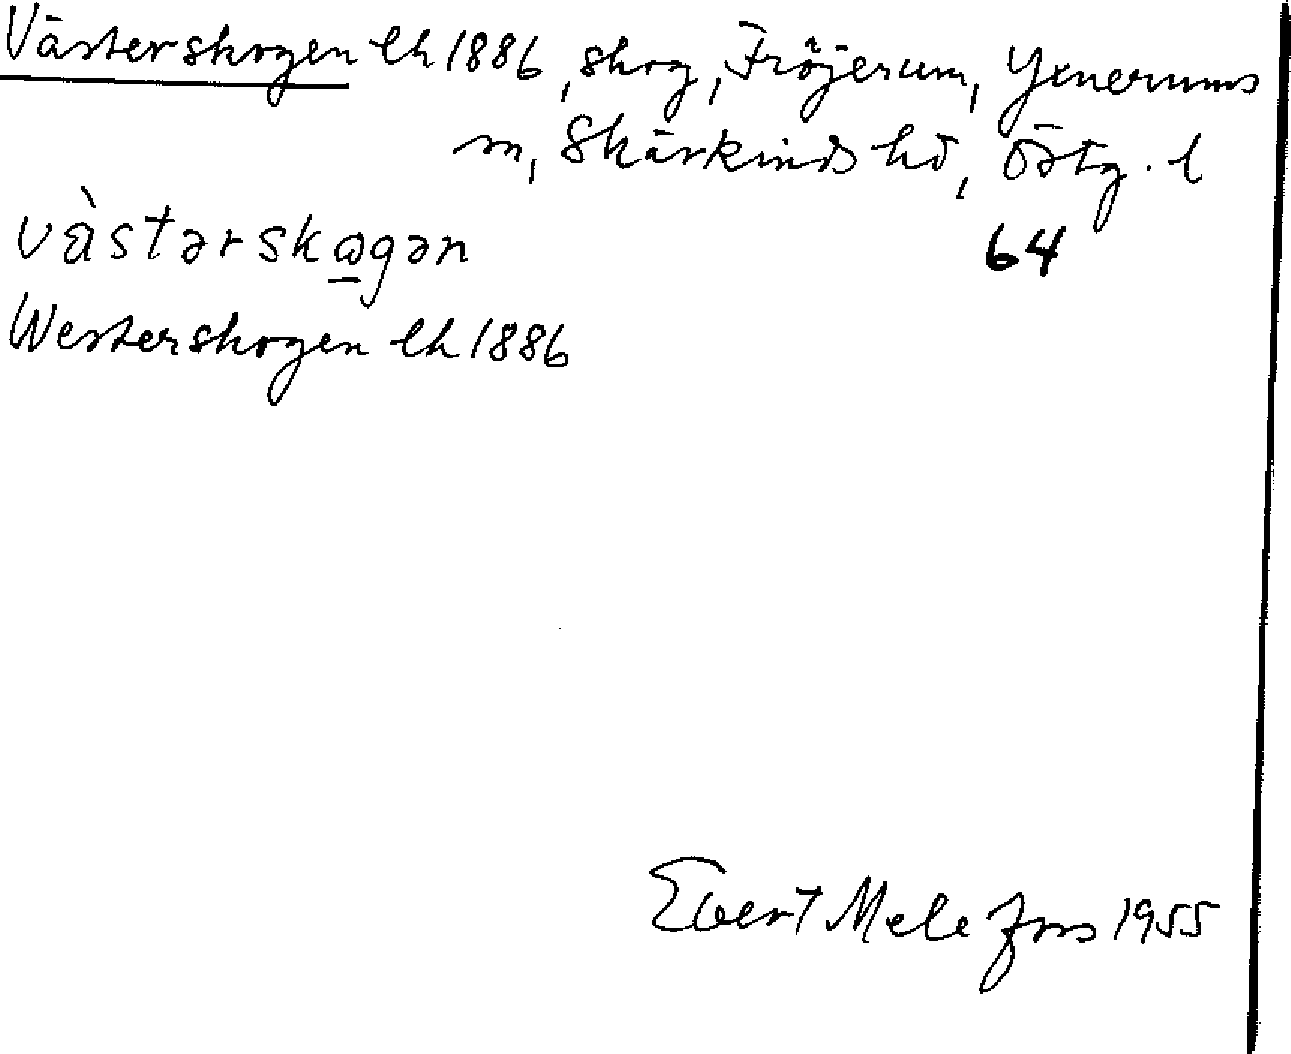 Västerskogen lh 1886, skog, Fröjerum, Yxnerums
sn, Skärkinds hd, Östg. l
vàstərskωgən
64
Westerskogen lh 1886
Evert Melefors 1955